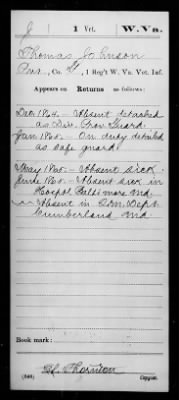 J | 1 Vet. | W. Va.
Thomas Johnson
Pvt., Co. H, 1 Reg't W. Va. Vet. Inf.
Appears on Returns as follows:
Dec. 1864. - Absent detached
as Div. Prov. Guard.
Jan. 1865. - On duty detailed
as safe guard
May 1865. - Absent sick.
June 1865. - Absent sick in
Hospt. Baltimore Md.
Absent in Com. Dept.
Cumberland Md.
Book mark:
Thornton
(546) Copyist.